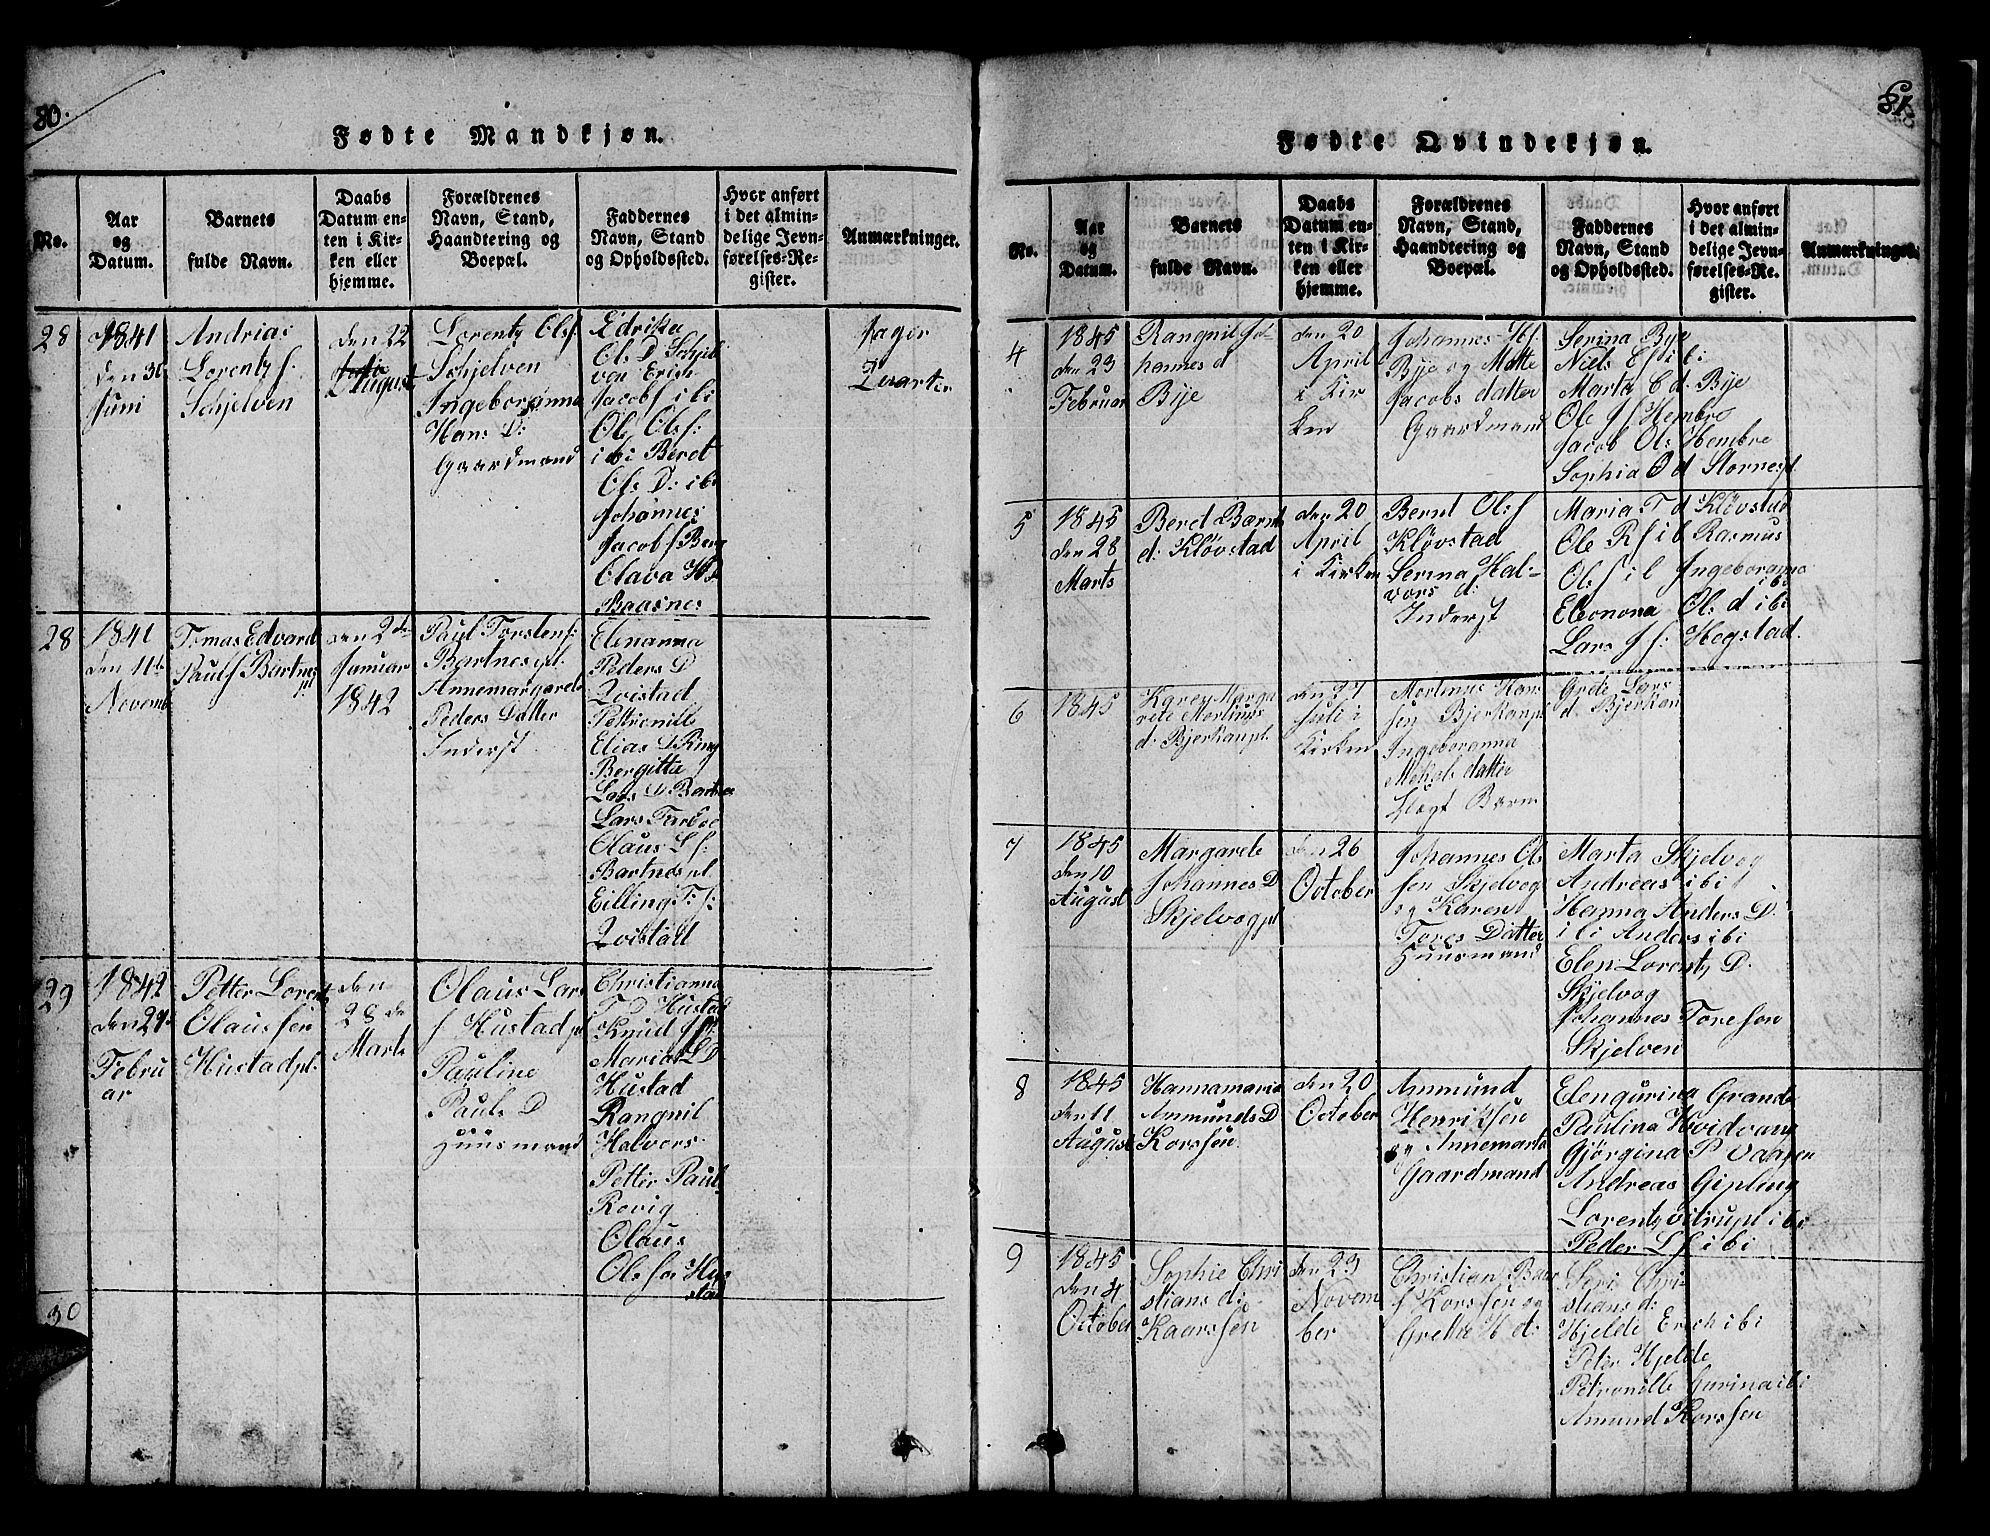 80.
Fødte Mandkjøn.
No.
Aar
og
Datum.
Barnets
fulde Navn.
Daabs
Datum en-
ten i Kir-
ken eller
hjemme.
Forældrenes
Navn, Stand,
Haandtering og
Boepæl.
Faddernes
Navn, Stand
og Opholdssted.
Hvor anført
i det almin-
delige Jevn-
førelses-Re-
gister.
Anmærkninger.
28
1841
den 30
Juni
Andrias
Lorentz f.
Schjelven
den 22
August
Lorentz Ols f.
Schjelven
Ingeboranna
Hans D:
Gaardmand
Edrika
Ols D Schjel
ven Erich
Jacobs f i bi
Ole Ols f:
i bi Beret
Ols D: i bi
Johannes
Jacobs f Berg
Olava H D
Baasnes
Jager
Qvarter
28
1841
den 11te
Novemb
Tomas Edvard
Pauls f Bartnes
pl
den 2de
Januar
1842
Paul Torstens f:
Bartnes pl.
Annemargaret
Peders Datter
Inderst
Elenanna
Peders D
Qvistad
Pettronille
Elias D Ring
Bergitta
Lars D Bartnes
Lars Tarboe
Olaus L f:
Bartnes pl
Eilling T: f:
Qvistad
29
1842
den 27de
Febru
ar
Petter Lorents
Olaus sen
Hustad pl.
den
28de
Marts
Olaus Lars
f Hustad pl
Pauline
Pauls D
Huusmand
Christianna
T D Hustad
Knud J f:
Maria L D
Hustad
Rangnil
Halvors
Petter Pauls
Rovig
Olaus
Ols sen Hu
stad
30
81.
Fødte Qvindekjøn.
No.
Aar
og
Datum.
Barnets
fulde Navn.
Daabs
Datum en-
ten i Kir-
ken eller
hjemme.
Forældrenes
Navn, Stand,
Haandtering og
Boepæl.
Faddernes
Navn, Stand
og Opholdssted.
Hvor anført
i det almin-
delige Jevn-
førelses-Re-
gister.
Anmærkninger.
4
1845
den 23
Februar
Rangnil Jo-
hannes d
Bye
den 20
April
i Kir
ken
Johannes H f.
Bye og Matte
Jacobs datter
Gaardmand
Serina Bye
Niels E f i bi
Marta E d. Bye
Ole J f Hembre
Jacob Ols Hembre
Sophia O d Stornes pl
5
1845
den 28
Marts
Beret Bernt
d: Kløvstad
den 20
April
i Kirken
Bernt Ols f
Kløvstad
Serina Hal-
vors d:
Inderst
Maria T d Kløvstad
Ole R f i b Rasmus
Ols f i b Ingeboranna
Eleonora Ols d i bi
Lars J f: Hogstad.
6
1845
Karen Marga
rete Mortinus
d. Bjerkan pl.
den 27
Juli i
Kirken
Mortinus Hans
sen Bjerkan pl
Ingeboranna
Mekals datter
Uegt Barn
Grete Lars
d. Bjerkan
7
1845
den 10
August
Margarete
Johannes D
Skjelvog pl
den 26
October
Johannes Ols
sen Skjelvog
og Karen
Tores Datter
Huusmand
Marta Skjelvog
Andreas i bi
Hanna Anders D.
i bi Anders i bi
Elen Lorentz D.
Skjelvog
Johannes Toresen
Skjelven
8
1845
den 11
August
Hannamaria
Ammunds D
Korssen
den 20
October
Ammund
Henriksen
og Annemarta
Gaardmand
Elengurina Grande
Paulina Hvidvang
Gjørgina P Vaapen
Andreas Gipling
Lorentz vitrup i bi
Peder L f i bi
9
1845
den 4
October
Sophie Chri
stians d:
Kaarssen
den 23
Novem
ber
Christian Baar
f Korssen og
Grethe H d:
Seri Chri
stians d:
Hjelde Erich i bi
Peter Hjelde
Petronille Gurina i bi
Amund Korssen